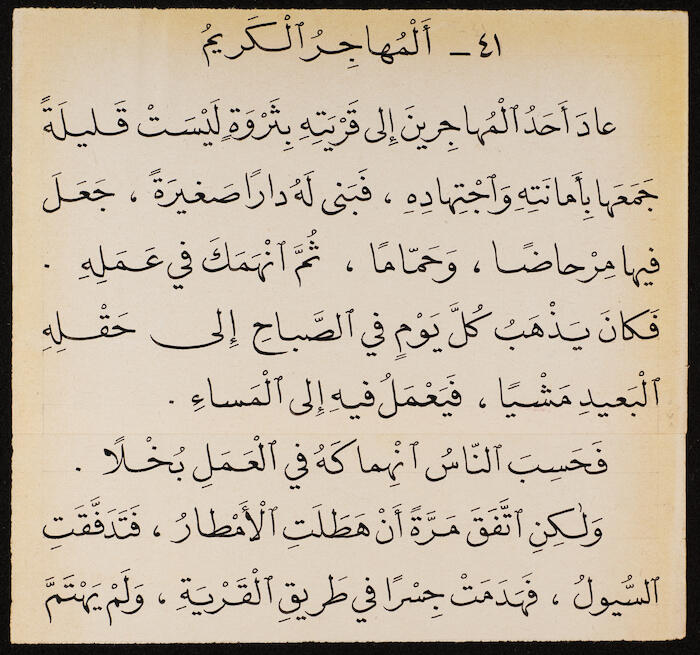 ٤١ – أَلْمُهاجِرُ ٱلْكَريمُ
عادَ أَحَدُ ٱلْمُهاجِرينَ إِلى قَرْيَتِهِ بِثَرْوَةٍ لَيْسَتْ قَليلَةً
جَمَعَها بِأَمانَتِهِ وَٱجْتِهادِهِ ، فَبَنى لَهُ دارًا صَغيرَةً ، جَعَلَ
فيها مِرْحاضًا ، وَحَمّامًا ، ثُمَّ ٱنْهَمَكَ في عَمَلِهِ .
فَكانَ يَذْهَبُ كُلَّ يَوْمٍ في ٱلصَّباحِ إِلى حَقْلِهِ
ٱلْبَعيدِ مَشْيًا ، فَيَعْمَلُ فيهِ إِلى ٱلْمَساءِ .
فَحَسِبَ ٱلنّاسُ ٱنْهِماكَهُ في ٱلْعَمَلِ بُخْلًا .
وَلٰكِنِ ٱتَّفَقَ مَرَّةً أَنْ هَطَلَتِ ٱلْأَمْطارُ ، فَتَدَفَّقَتِ
ٱلسُّيولُ ، فَهَدَمَتْ جِسْرًا في طَريقِ ٱلْقَرْيَةِ ، وَلَمْ يَهْتَمَّ